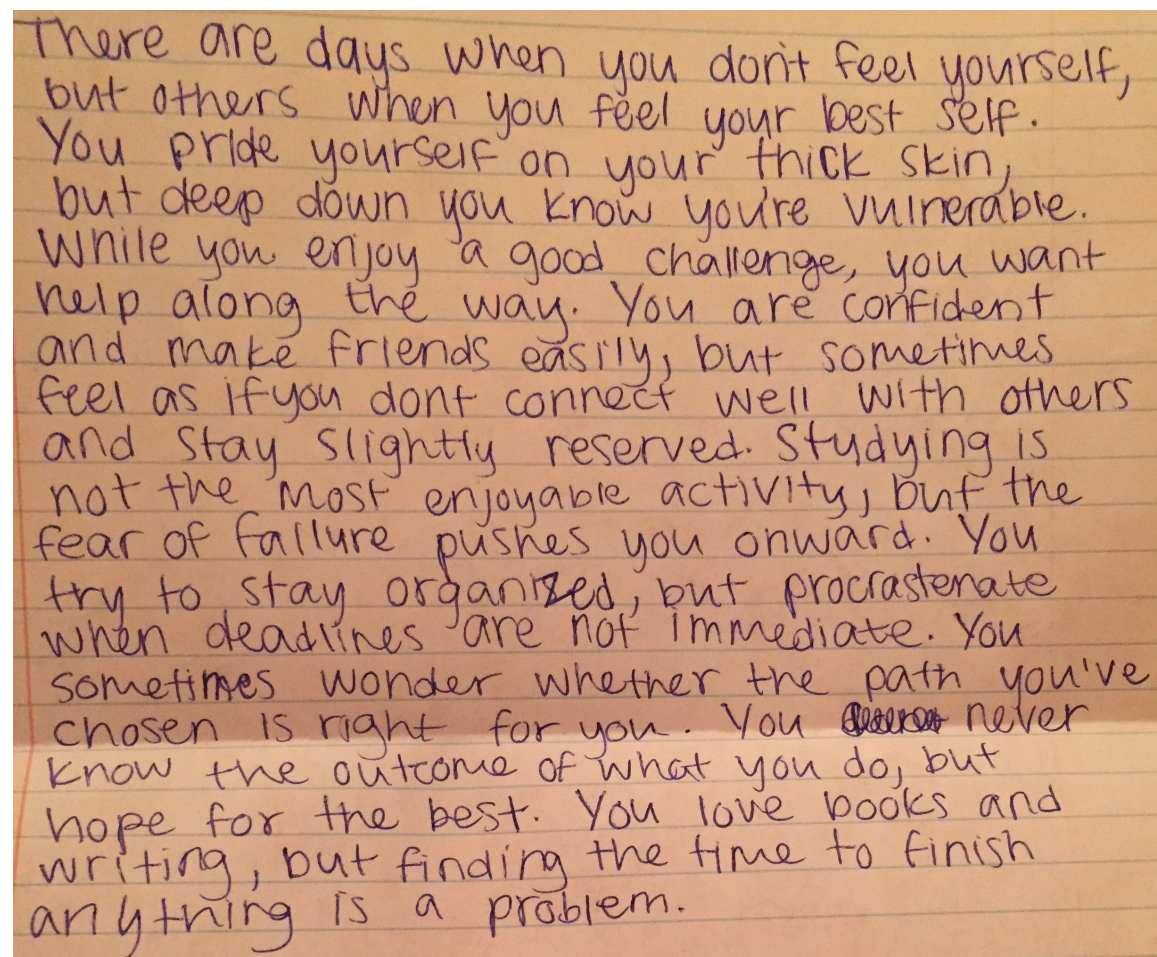 There are days when you don't feel yourself,
but others when you feel your best self.
You pride yourself on your thick skin,
but deep down you know you're vulnerable.
While you enjoy a good challenge, you want
help along the way. You are confident
and make friends easily, but sometimes
feel as if you dont connect well with others
and stay slightly reserved. Studying is
not the most enjoyable activity, but the
fear of failure pushes you onward. You
try to stay organized, but procrastenate
when deadlines are not immediate. You
sometimes wonder whether the path you've
chosen is right for you. You never
know the outcome of what you do, but
hope for the best. You love books and
writing, but finding the time to finish
anything is a problem.